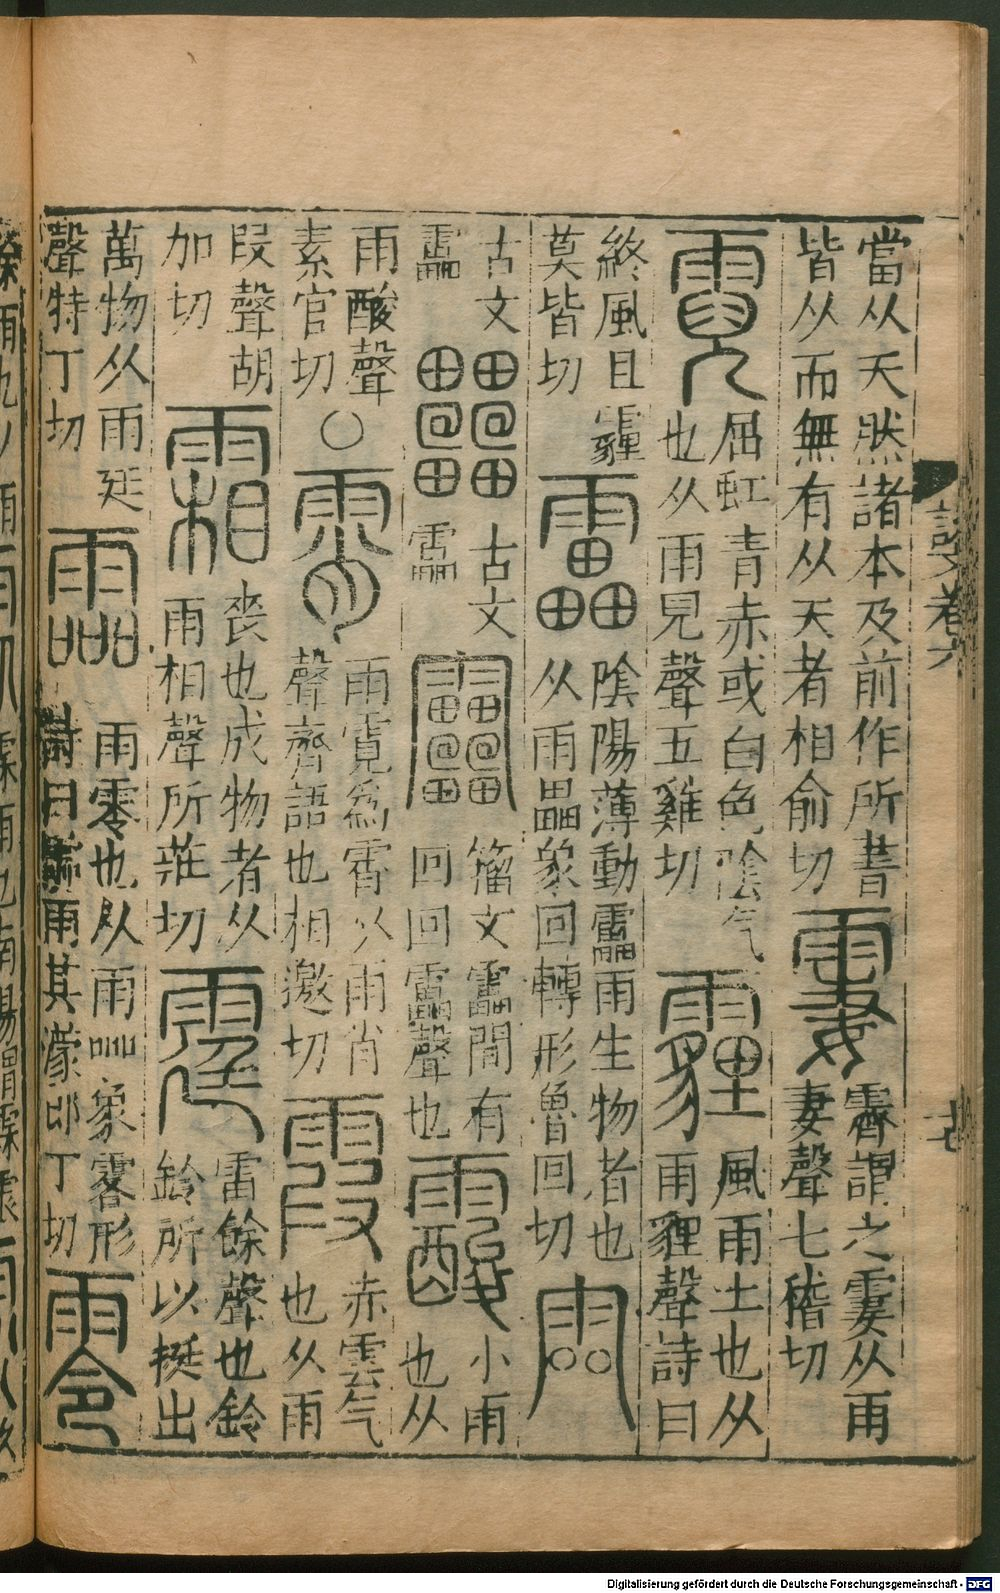 當从天然諸本及前作所書
皆从而無有从天者相俞切
霋
霽謂之霋从雨
妻聲七稽切
霓
屈虹青赤或白色陰气
也从雨兒聲五雞切
霾
風雨土也从
雨貍聲詩曰
終風且霾
莫皆切
靁
陰陽薄動靁雨生物者也
从雨畾象回轉形魯回切
古文
靁
古文
靁
籀文靁間有
回回靁聲也
霰
小雨
也从
雨酸聲
素官切
○
霄
雨霓爲霄从雨肖
聲齊語也相邀切
霞
赤雲气
也从雨
叚聲胡
加切
霜
喪也成物者从
雨相聲所莊切
霆
雷餘聲也鈴
鈴所以挺出
萬物从雨廷
聲特丁切
霝
雨零也从雨吅象霿形
詩曰霝雨其濛郎丁切
零
說文卷六
十七
Digitalisierung gefördert durch die Deutsche Forschungsgemeinschaft - DFG